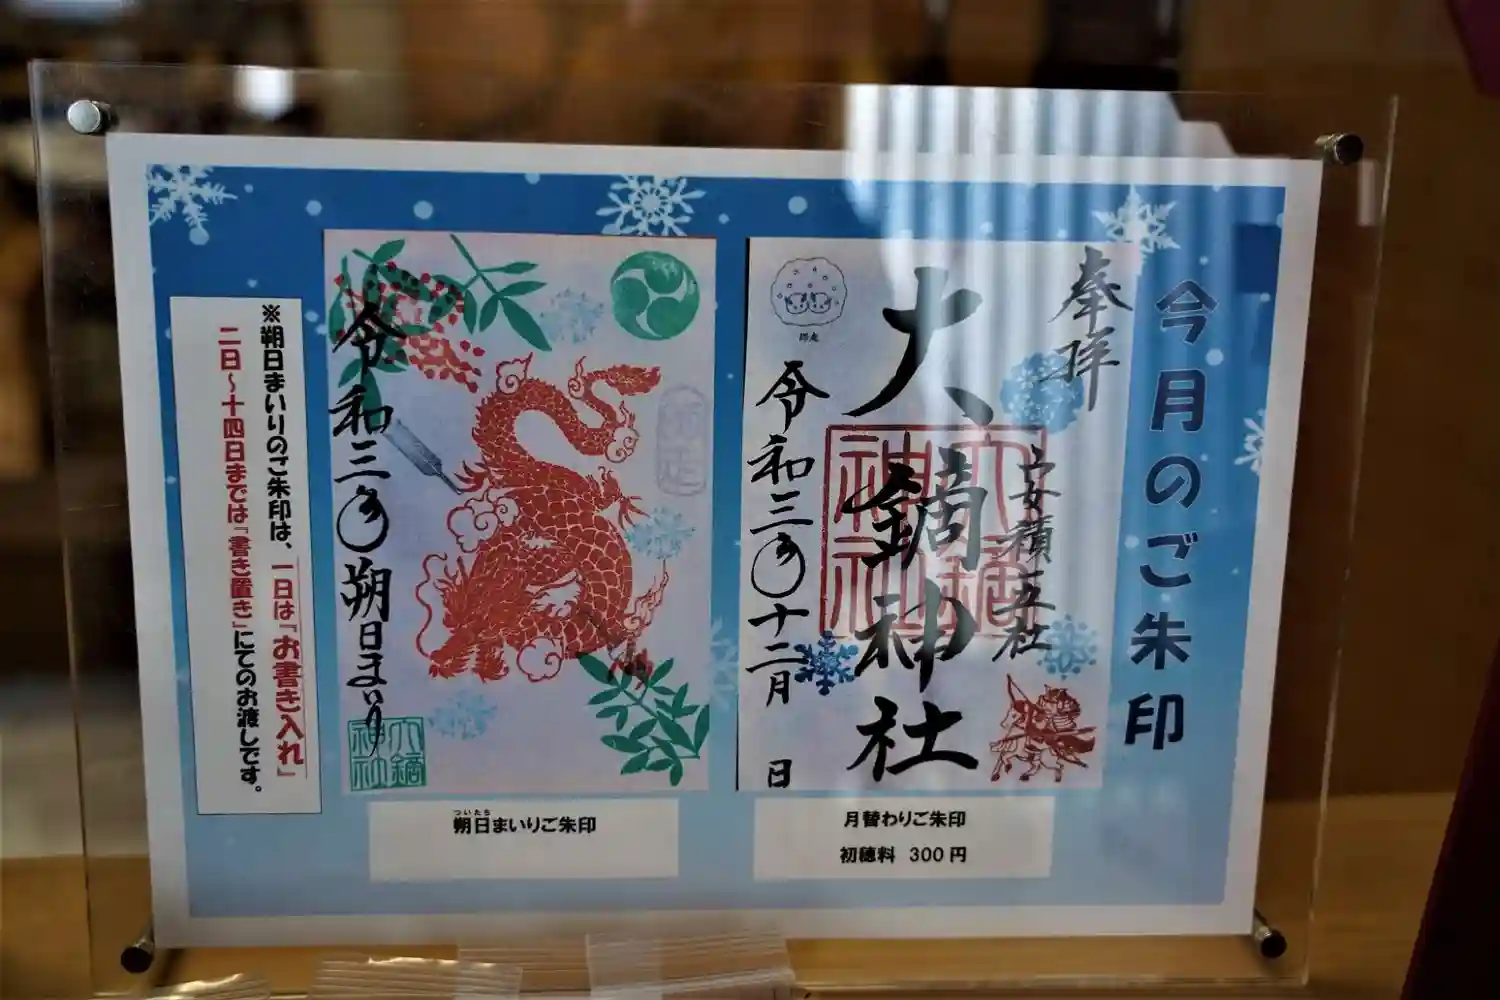 今月のご朱印
奉拝
安積五社
大鏑神社
令和三年十二月 日
師走
月替わりご朱印
初穂料 300円
令和三年朔日まいり
ついたち
朔日まいりご朱印
※朔日まいりのご朱印は、一日は『お書き入れ』
二日~十四日までは『書き置き』にてのお渡しです。